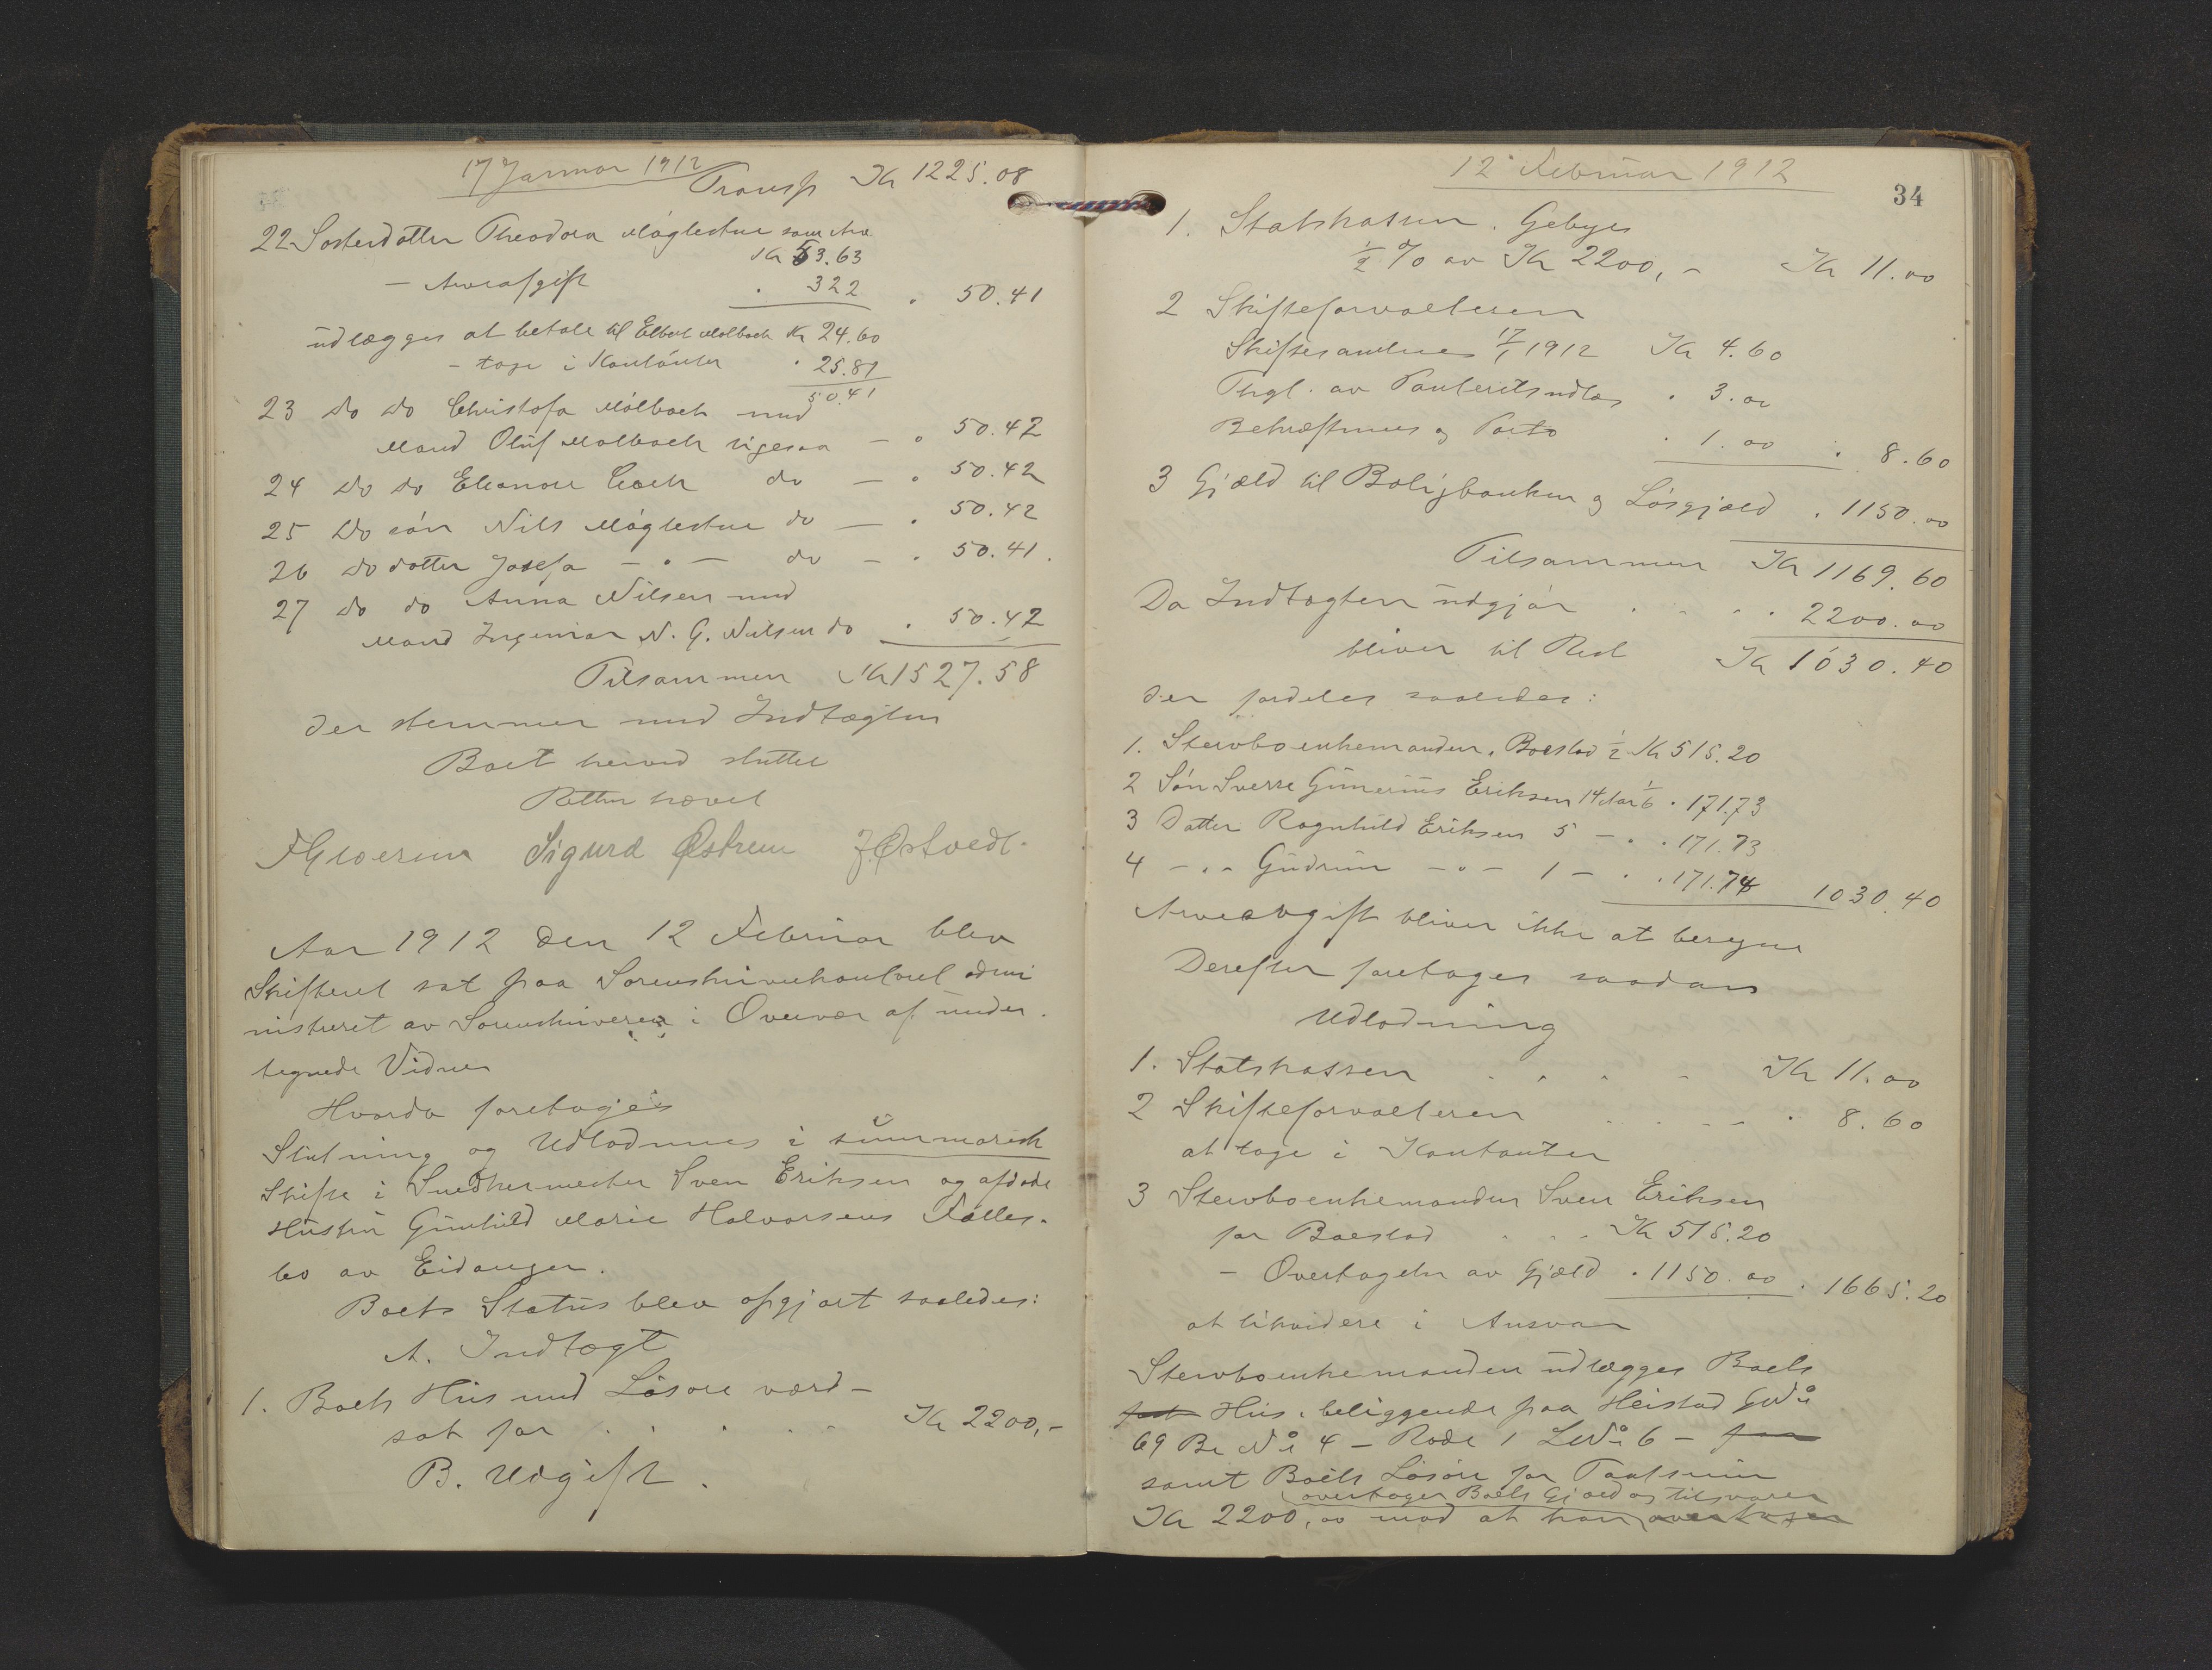 17 Januar 1912
Transp Kr 1225.08
22 Søsterdatter Theodora Møglestue som Arv
Kr 53.63
- Arveafgift " 3 22 " 50.41
udlægges at betale til Elbert Molbach Kr 24.60
- tage i Kontanter " 25.81
50.41
23 Do Do Christofa Molbach med
Mand Oluf Molbach ligesaa - " 50.42
24 Do do Eleonore do - " 50.42
25 Do søn Nils Møglestue do - " 50.42
26 Do datter Josefa - " - do - " 50.41.
27 Do do Anna Nilsen med
Mand Ingeniør N. G. Nilsen do " 50.42
Tilsammen Kr 1527.58
der stemmer med Indtægten
Boet herved sluttet
Retten hævet
Sigurd Østrem J. Østvedt.
Aar 1912 den 12 Februar blev
Skifteret sat paa Sorenskriverkontoret admi
nistreret av Sorenskriveren i Overvær af under
tegnede Vidner
Hvorda foretoges
Slutning og Udlodning i summarisk
Skifte i Snedkermester Sven Eriksen og afdøde
Hustru Gunhild Marie Halvorsens Fælles-
bo av Eidanger.
Boets Status blev opgjort saaledes:
A. Indtægt
1. Boets Hus med Løsøre værd-
sat for . . . . Kr 2200,-
B. Udgift.
12 Februar 1912
34
1. Statskassen. Gebyr
½ % av Kr 2200,- Kr 11.00
2 Skifteforvalteren
Skiftesamling 17/1 1912 Kr 4.60
Thgl. av Panteretsudlæg " 3.00
Bekræftning og Porto " 1.00 " 8.60
3 Gjæld til Boligbanken og Løsgjæld " 1150.00
Tilsammen Kr 1169.60
Da Indtægten udgjør . . . . 2200.00
bliver til Rest Kr 1030.40
der fordeles saaledes:
1. Stervboenkemanden, Boeslod ½ Kr 515.20
2 Søn Sverre Gunerius Eriksen 14 Aar 1/6 " 171.73
3 Datter Ragnhild Eriksen 5 - " " 171.73
4 - " - Gudrun - " - 1 - " " 171.74 1030.40
Arveavgift bliver ikke at beregne
Derefter foretages saadan
Udlodning
1. Statskassen . . . . Kr 11.00
2 Skifteforvalteren . . . . " 8.60
at tage i Kontanter
3 Stervboenkemanden Sven Eriksen
for Boeslod . . . Kr 515.20
- Overtagelse av Gjæld " 1150.00 " 1665.20
at likvidere i Ansvar
Stervboenkemanden udlægges Boets
Hus, beliggende paa Heistad GNo
69 Br No 4 - Rode 1 LNo 6 - for
samt Boets Løsøre for Taxtsum
overtager Boets Gjæld og tilsvarer
Kr 2200,00 mod at han overtager